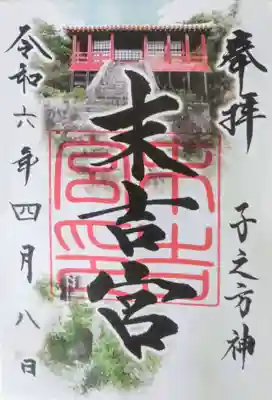 奉拝
子之方神
末吉宮
令和六年四月八日